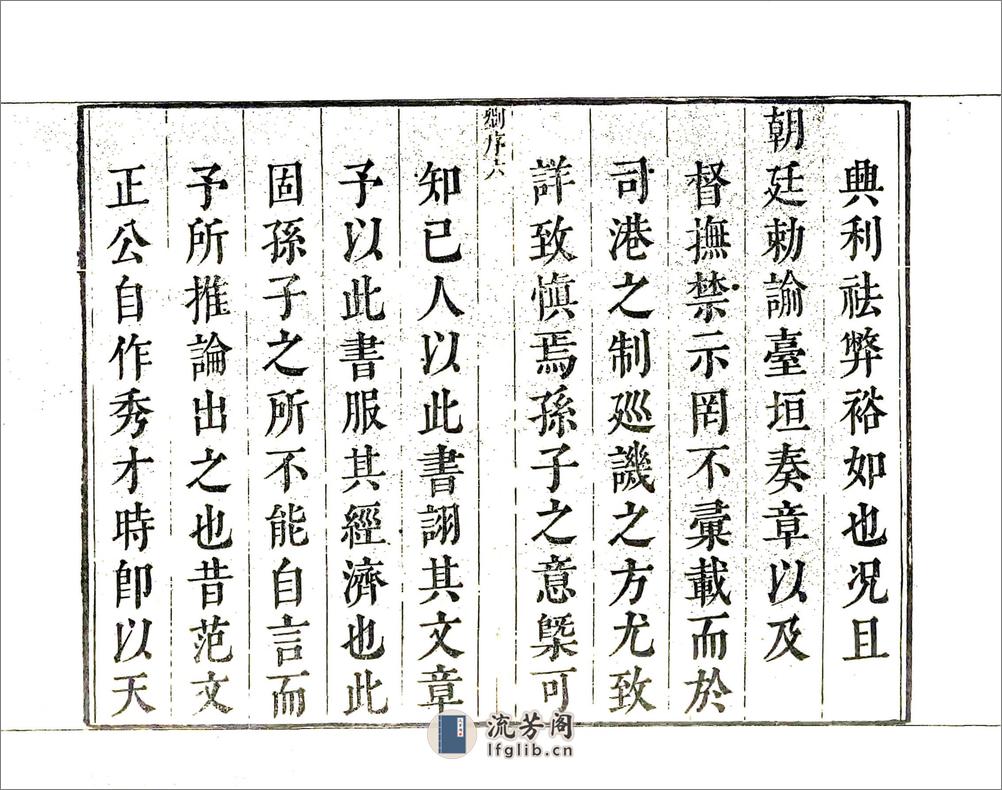 興利祛弊裕如也况且
朝廷勅諭臺垣奏章以及
督撫禁示罔不彙載而於
司港之制廵譏之方尤致
詳致慎焉孫子之意槩可
劉序六
知已人以此書詡其文章
予以此書服其經濟也此
固孫子之所不能自言而
予所推論出之也昔范文
正公自作秀才時即以天
流芳阁
lfglib.cn